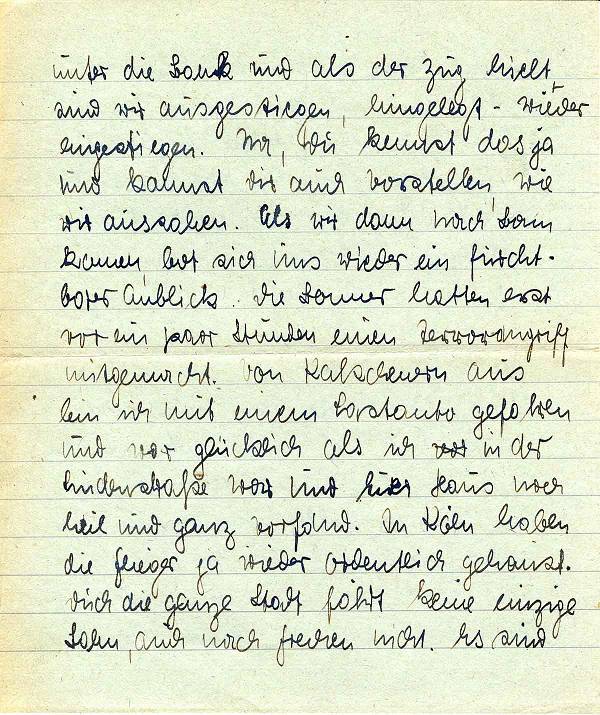 unter die Bank und als der Zug hielt,
sind wir ausgestiegen, hingelegt - wieder
eingestiegen. Na, Du kennst das ja
und kannst dir auch vorstellen, wie
wir aussahen. Als wir dann nach Bonn
kamen, bot sich uns wieder ein furcht-
barer Anblick. Die Bonner hatten erst
vor ein paar Stunden einen Terrorangriff
mitgemacht. Von Kalscheuern aus
bin ich mit einem Lastauto gefahren
und war glücklich als ich in der
Lindenstraße war und hier Haus noch
heil und ganz vorfand. In Köln haben
die Flieger ja wieder ordentlich gehaust.
Durch die ganze Stadt fährt keine einzige
Bahn, auch nach Frechen nicht. Es sind